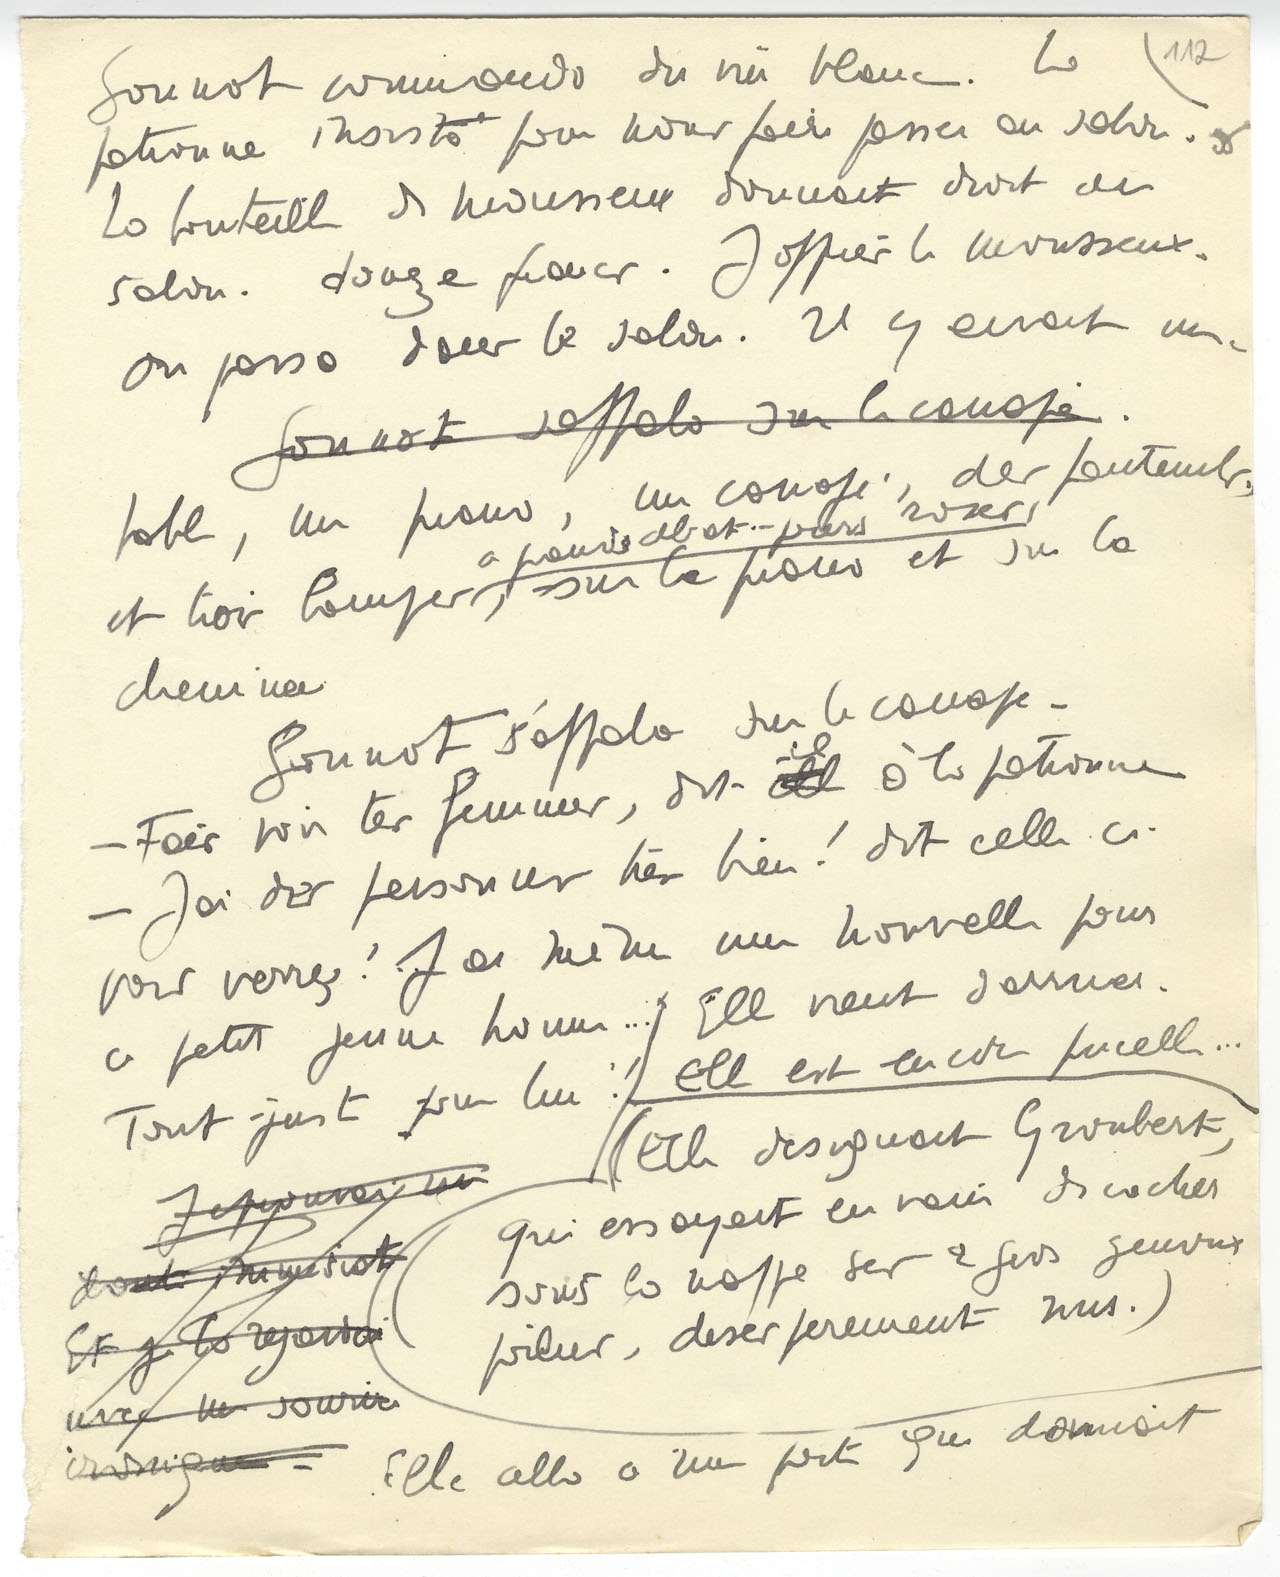 112
Gonnot commanda du vin blanc. La
patronne insista pour nous faire passer au salon.
La bouteille de mousseux donnait droit au
salon. douze francs. J'offris le mousseux.
On passa dans le salon. Il y avait une
Gonnot s'affala sur le canapé.
table, un piano, un canapé, des fauteuils,
a pauvres abat-jours roses,
et trois lampes, sur le piano et sur la
cheminée
Gonnot s'affala sur le canapé -
- Fais voir tes femmes, dit il à la patronne
- J'ai des personnes très bien! dit celle ci.
vous verrez! J'ai même une nouvelle pour
ce petit jeune homme... Elle vient d'arriver.
Tout juste pour lui! Elle est encore pucelle...
(Elle désignait Groubert,
qui essayait en vain de cacher
sous la nappe ses 2 gros genoux
poilus, désespérément nus.)
Et je la regardai
avec un sourire
Elle alla a une porte qui donnait